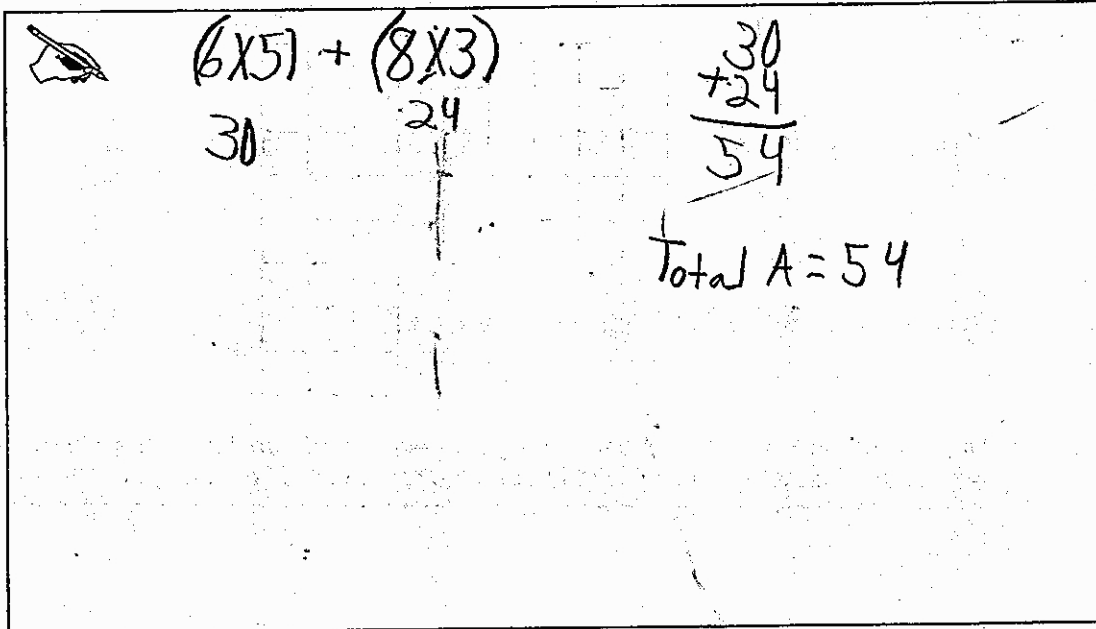 (6X5) + (8X3)
30 24
30
+24
54
Total A = 54